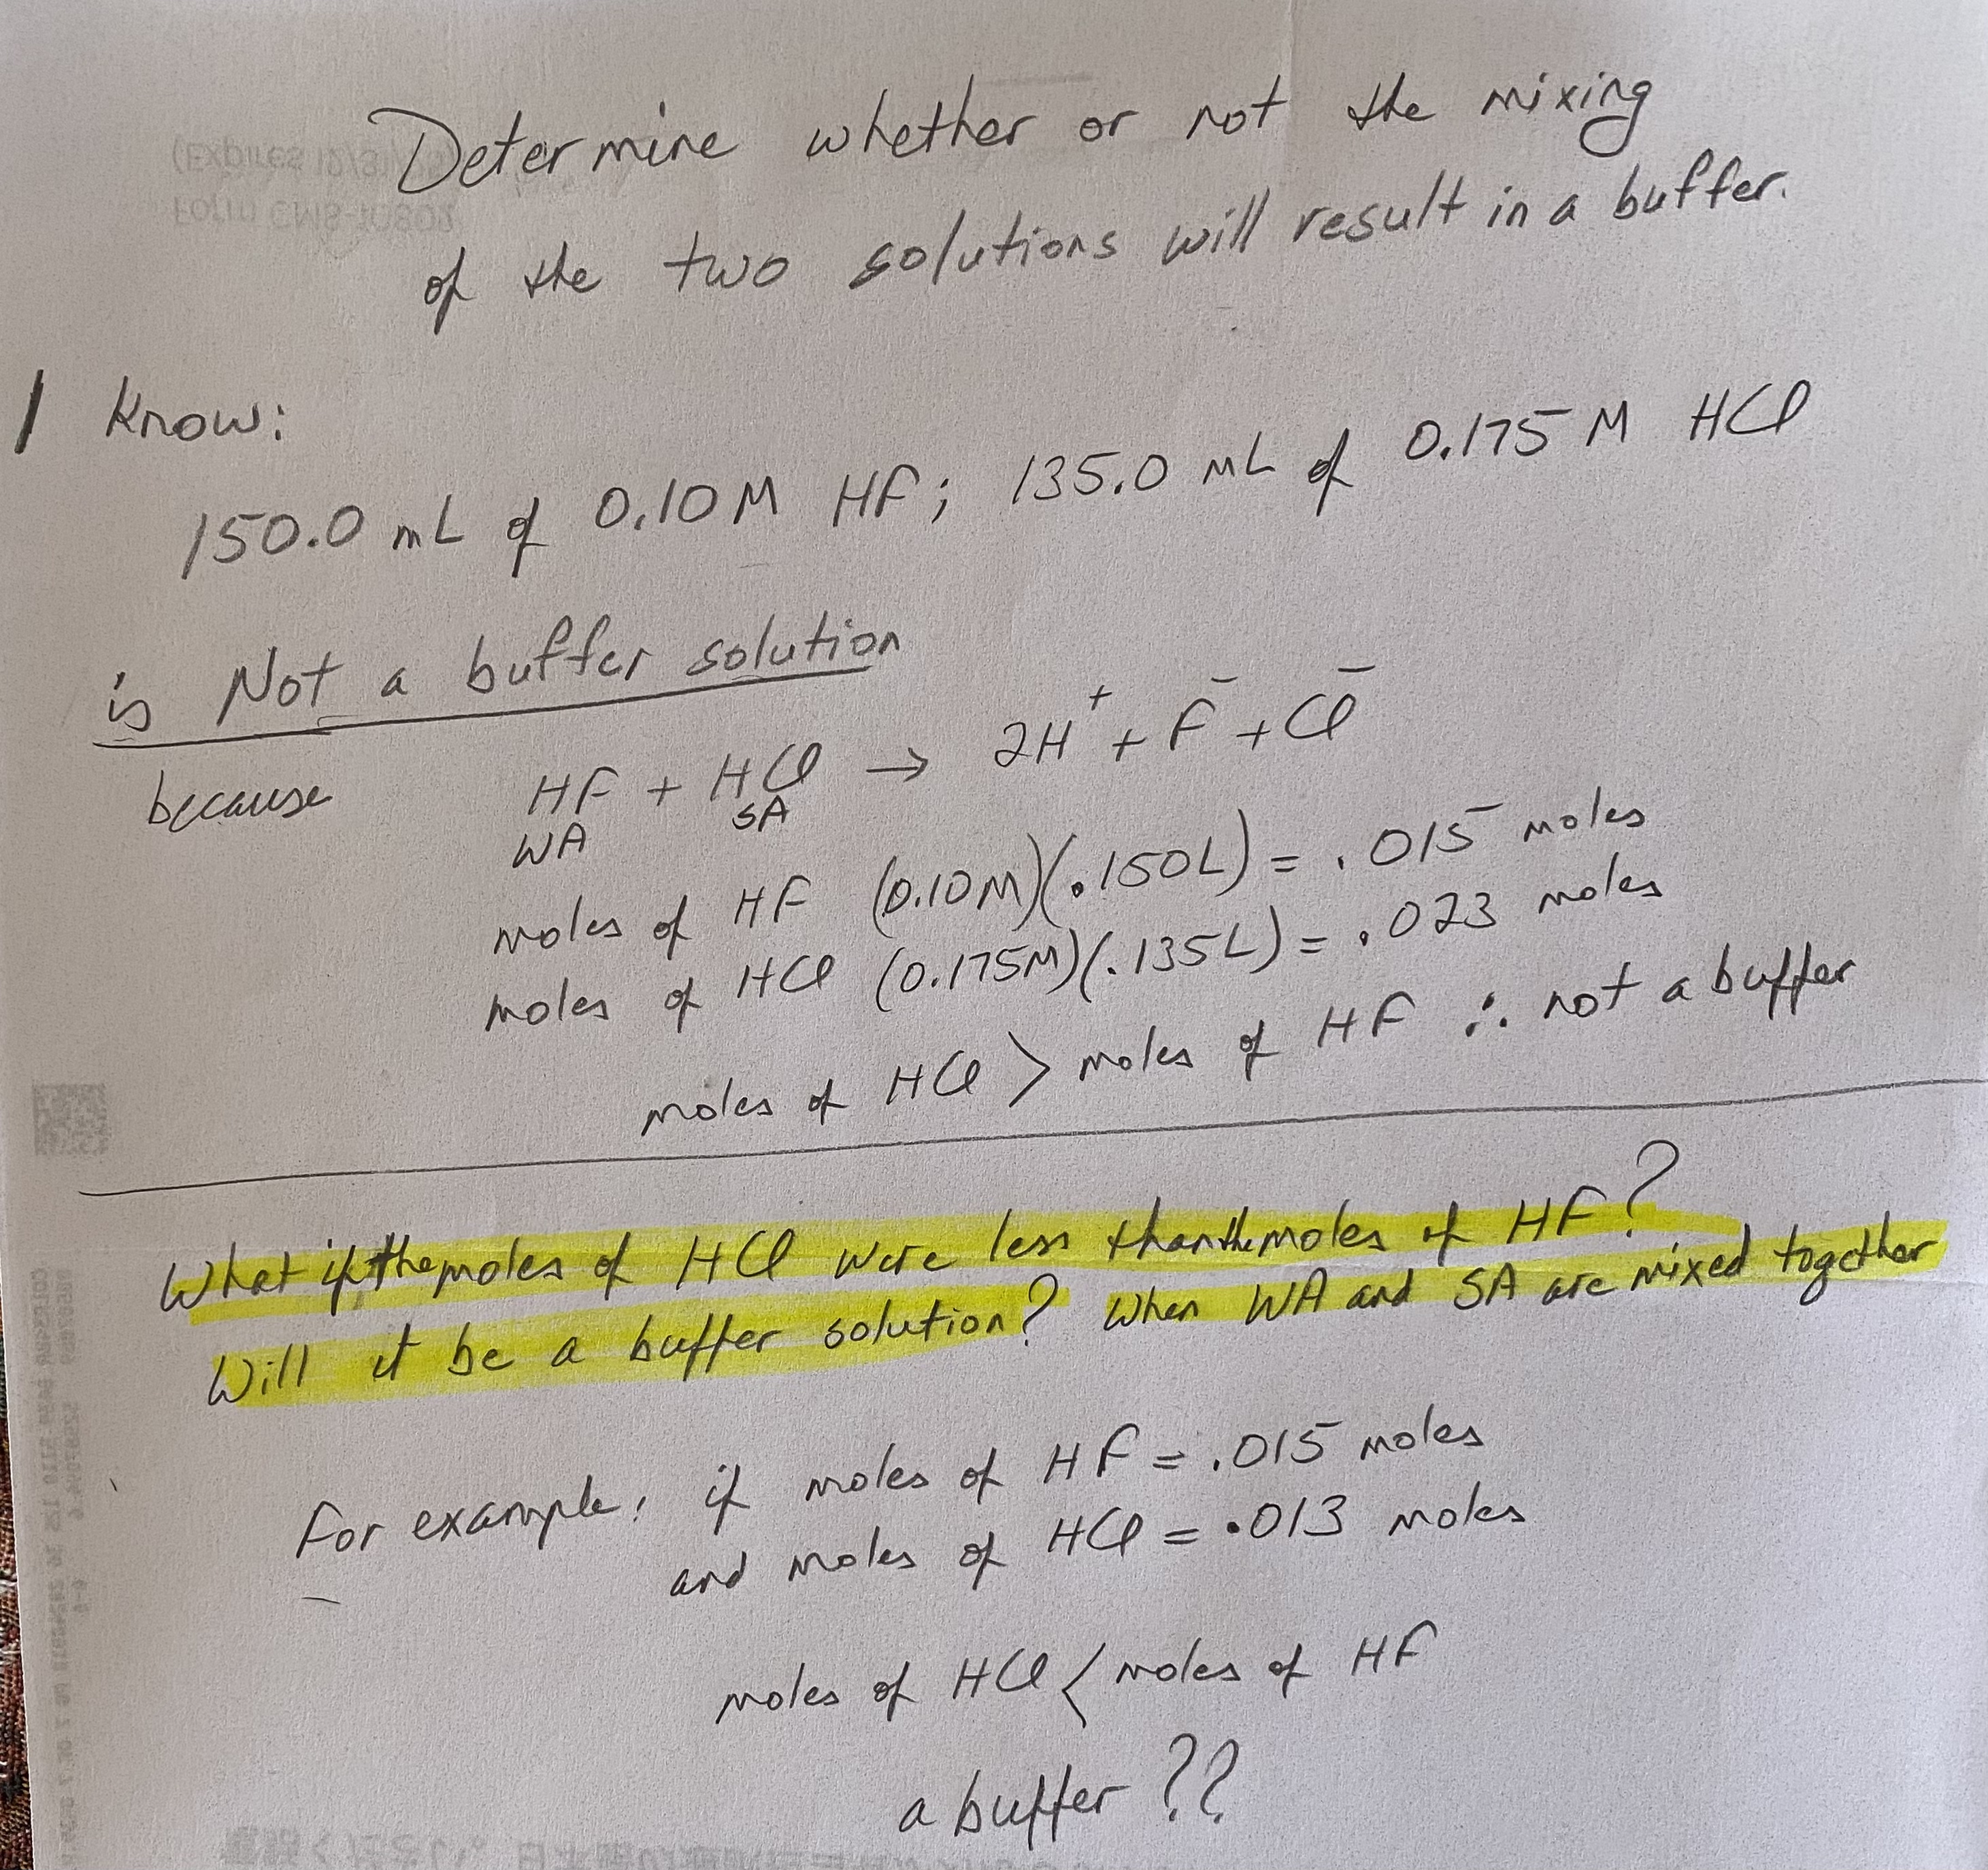 Determine whether or not the mixing
of the two solutions will result in a buffer.
I know:
150.0 mL of 0.10 M HF; 135.0 mL of 0.175 M HCl
is Not a buffer solution
because HF + HCl → 2H⁺ + F⁻ + Cl⁻
WA SA
moles of HF (0.10M)(.150L) = .015 moles
moles of HCl (0.175M)(.135L) = .023 moles
moles of HCl > moles of HF ∴ not a buffer
What if the moles of HCl were less than the moles of HF?
Will it be a buffer solution? When WA and SA are mixed together
For example, if moles of HF = .015 moles
and moles of HCl = .013 moles
moles of HCl < moles of HF
a buffer ??
(Expires 12/31/
Form CMS-10802